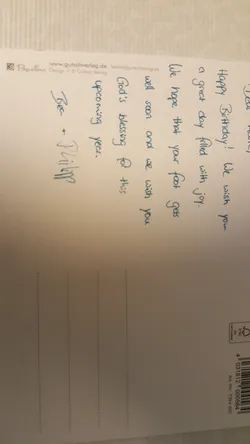 Happy Birthday! We wish you
a great day filled with joy.
We hope that your foot gets
well soon and we wish you
God's blessing for this
upcoming year.
+ Philipp